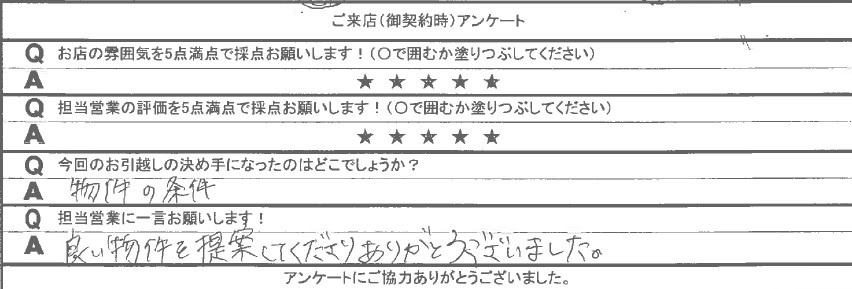 ご来店(御契約時)アンケート
Q お店の雰囲気を5点満点で採点お願いします!(〇で囲むか塗りつぶしてください)
A ★ ★ ★ ★ ★
Q 担当営業の評価を5点満点で採点お願いします!(〇で囲むか塗りつぶしてください)
A ★ ★ ★ ★ ★
Q 今回のお引越しの決め手になったのはどこでしょうか?
A 物件の条件
Q 担当営業に一言お願いします!
A 良い物件を提案してくださりありがとうございました。
アンケートにご協力ありがとうございました。